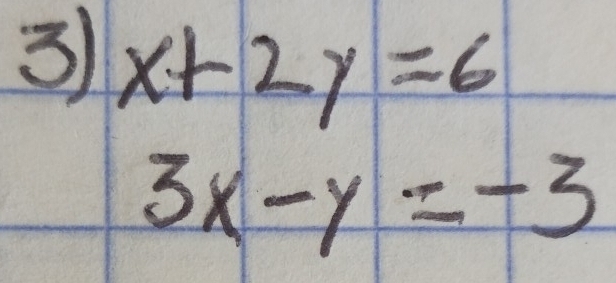 3) x+2y=6
3x-y=-3